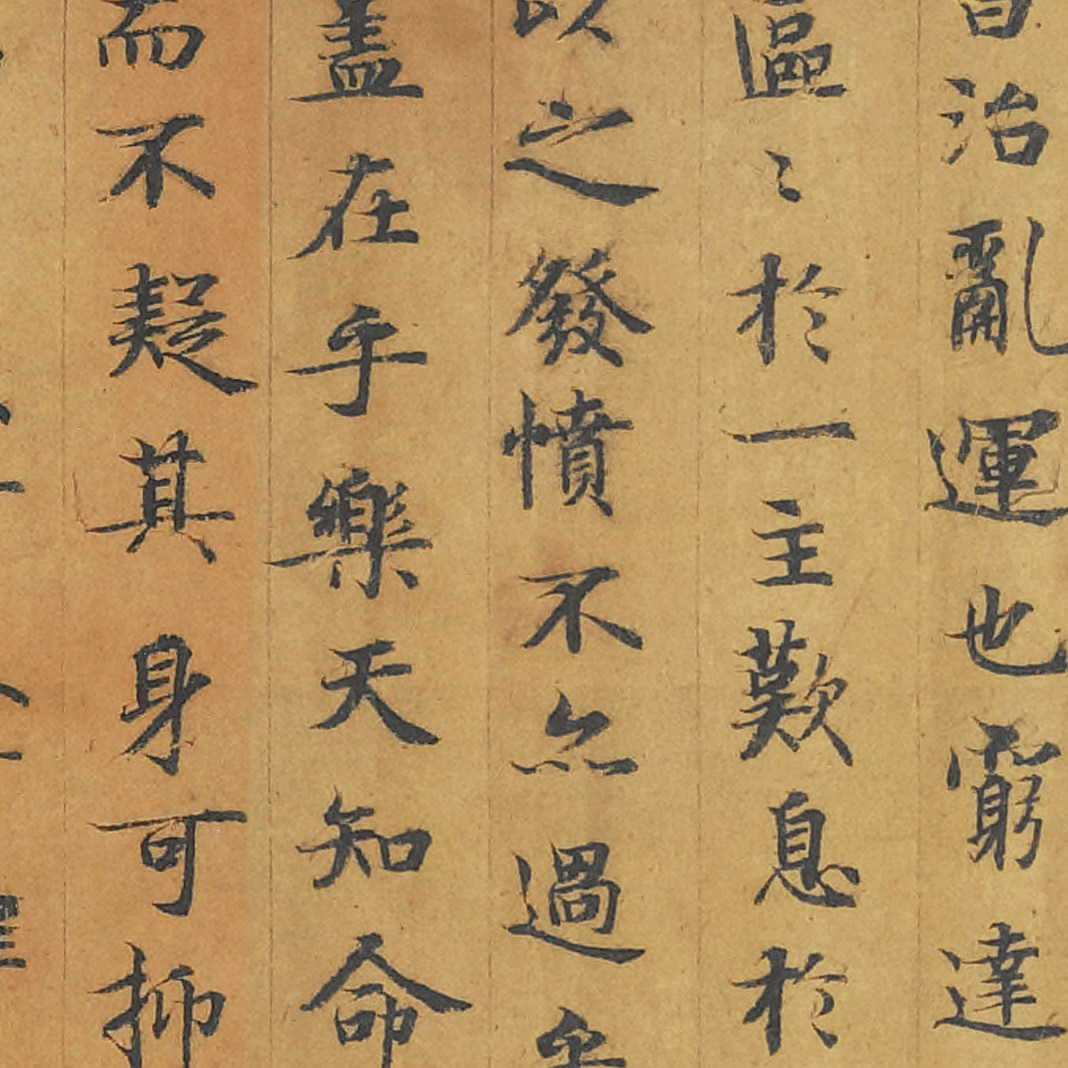 治亂運也窮達
區〻於一主歎息於
之發憤不亦過乎
蓋在乎樂天知命
而不疑其身可抑